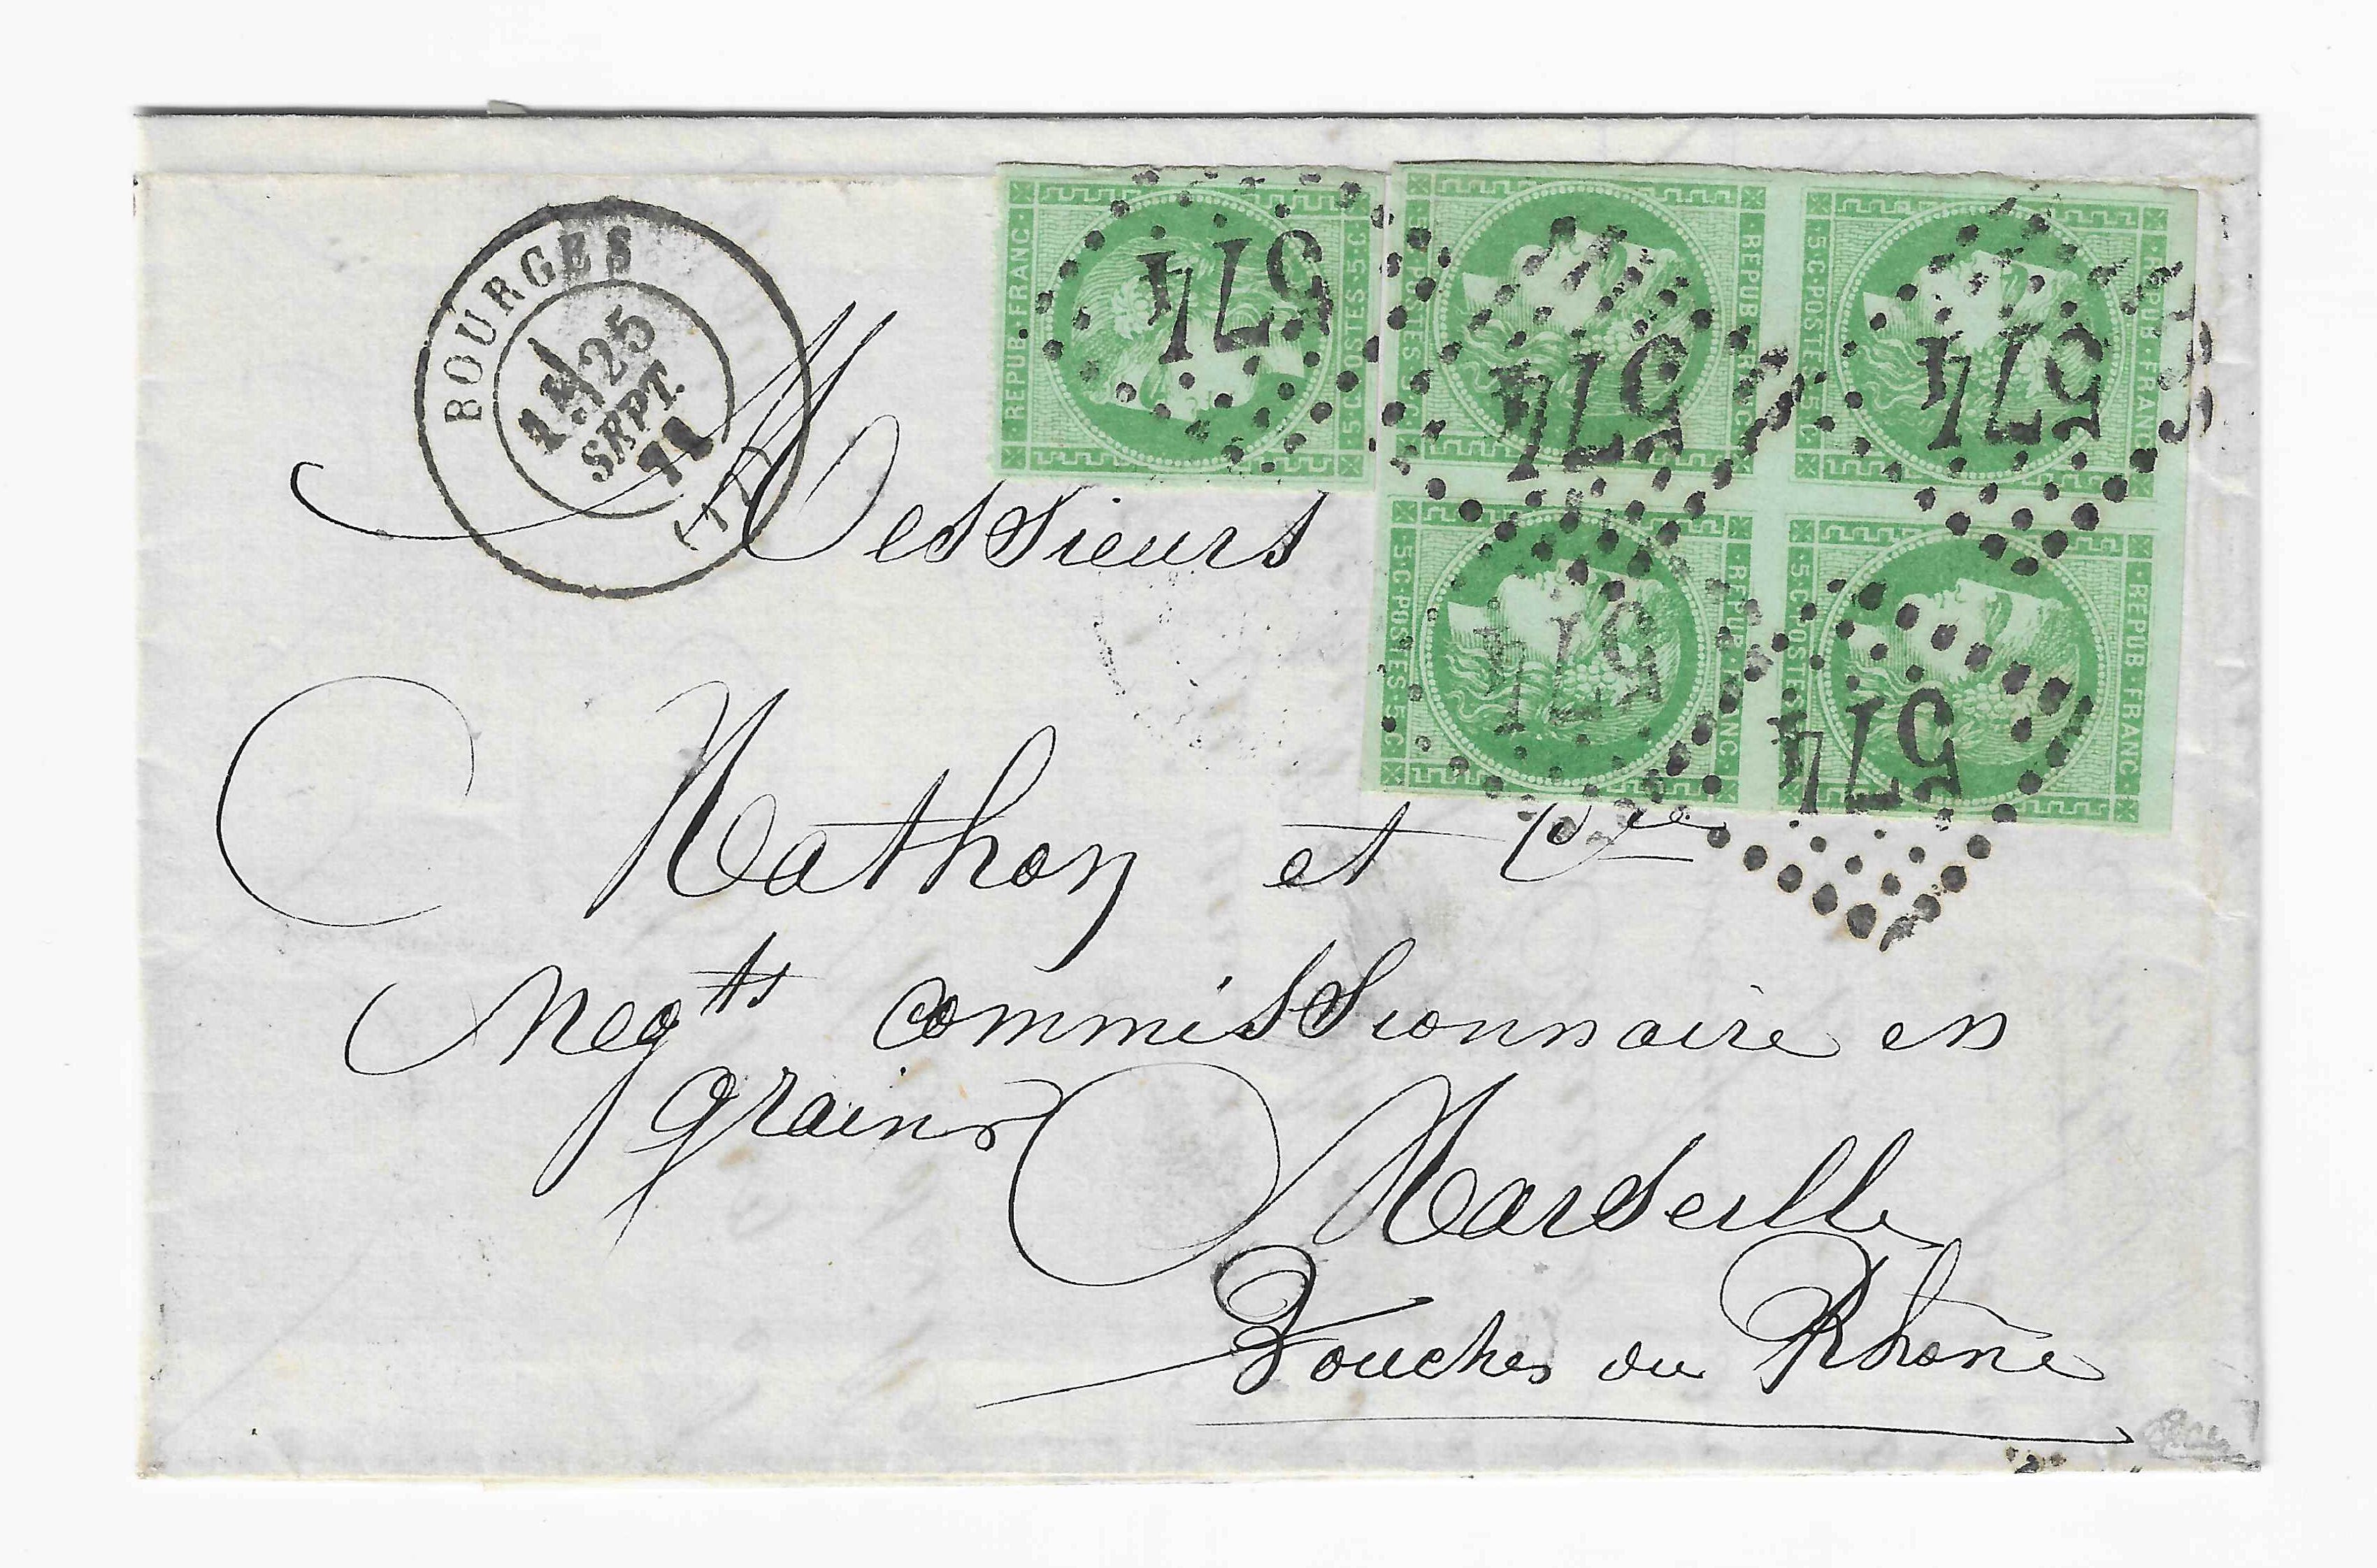 BOURGES
25
SEPT.
71
(17)
5 C · POSTES · 5 C · REPUB · FRANC ·
574
5 C · POSTES · 5 C · REPUB · FRANC ·
574
5 C · POSTES · 5 C · REPUB · FRANC ·
574
5 C · POSTES · 5 C · REPUB · FRANC ·
574
5 C · POSTES · 5 C · REPUB · FRANC ·
574
Messieurs
Mathon et Cie
Negts commissionnaire en
grains
Marseille
Bouches du Rhône